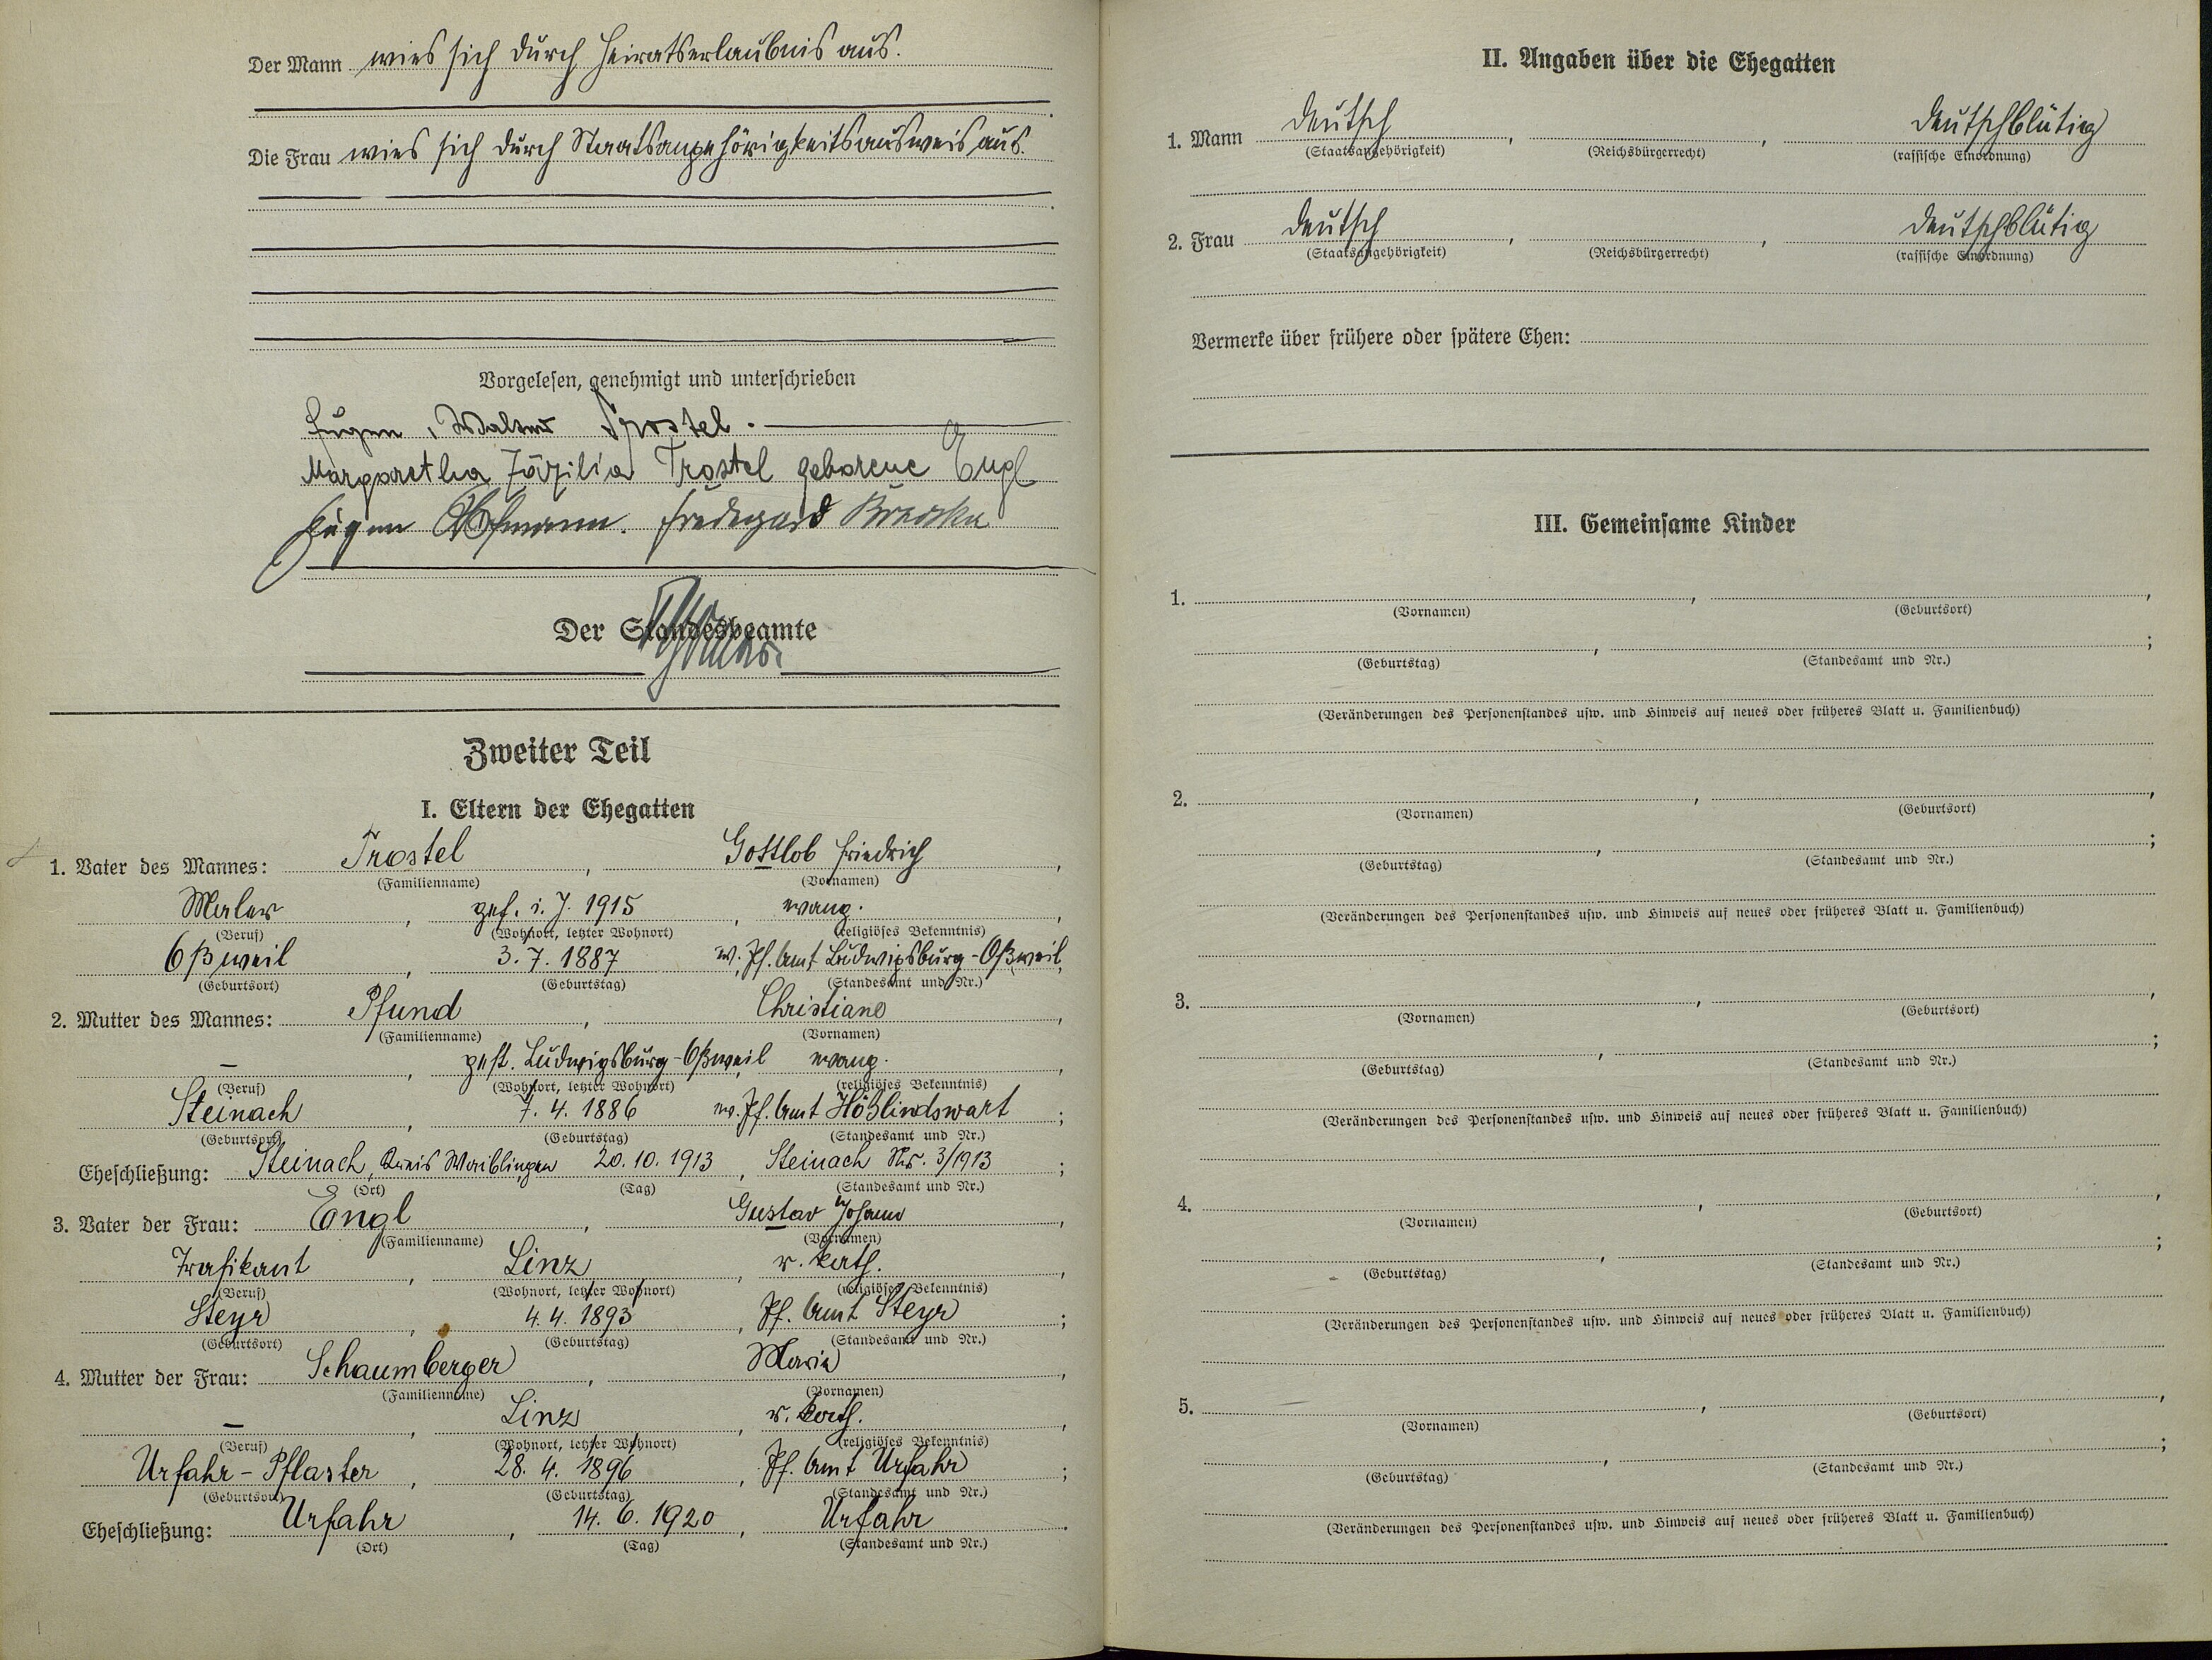 Der Mann wies sich durch Heiratserlaubnis aus.
Die Frau wies sich durch Staatsangehörigkeitsausweis aus.
Vorgelesen, genehmigt und unterschrieben
Eugen Walter Trostel.
Margaretha Zäzilia Trostel geborene Engl
Eugen Friedegard
Der Standesbeamte
Zweiter Teil
I. Eltern der Ehegatten
1. Vater des Mannes: Trostel, Gottlob Friedrich,
(Familienname) (Vornamen)
Maler, gef. i. J. 1915, evang.,
(Beruf) (Wohnort, letzter Wohnort) (religiöses Bekenntnis)
Oßweil, 3.7.1887 ev. Pf. Amt Ludwigsburg-Oßweil,
(Geburtsort) (Geburtstag) (Standesamt und Nr.)
2. Mutter des Mannes: Pfund, Christiane,
(Familienname) (Vornamen)
—, gest. Ludwigsburg-Oßweil, evang.,
(Beruf) (Wohnort, letzter Wohnort) (religiöses Bekenntnis)
Steinach, 7.4.1886 ev. Pf. Amt Hößlindswart;
(Geburtsort) (Geburtstag) (Standesamt und Nr.)
Eheschließung: Steinach, Kreis Waiblingen 20.10.1913, Steinach Nr. 3/1913;
(Ort) (Tag) (Standesamt und Nr.)
3. Vater der Frau: Engl, Gustav Johann,
(Familienname) (Vornamen)
Trafikant, Linz, r. kath.,
(Beruf) (Wohnort, letzter Wohnort) (religiöses Bekenntnis)
Steyr, 4.4.1893, Pf. Amt Steyr;
(Geburtsort) (Geburtstag) (Standesamt und Nr.)
4. Mutter der Frau: Schaumberger, Maria,
(Familienname) (Vornamen)
—, Linz, r. kath.,
(Beruf) (Wohnort, letzter Wohnort) (religiöses Bekenntnis)
Urfahr-Pflaster, 28.4.1896, Pf. Amt Urfahr;
(Geburtsort) (Geburtstag) (Standesamt und Nr.)
Eheschließung: Urfahr, 14.6.1920, Urfahr.
(Ort) (Tag) (Standesamt und Nr.)
II. Angaben über die Ehegatten
1. Mann deutsch, , deutschblütig
(Staatsangehörigkeit) (Reichsbürgerrecht) (rassische Einordnung)
2. Frau deutsch, , deutschblütig
(Staatsangehörigkeit) (Reichsbürgerrecht) (rassische Einordnung)
Vermerke über frühere oder spätere Ehen:
III. Gemeinsame Kinder
1. , ,
(Vornamen) (Geburtsort)
, ;
(Geburtstag) (Standesamt und Nr.)
(Veränderungen des Personenstandes usw. und Hinweis auf neues oder früheres Blatt u. Familienbuch)
2. , ,
(Vornamen) (Geburtsort)
, ;
(Geburtstag) (Standesamt und Nr.)
(Veränderungen des Personenstandes usw. und Hinweis auf neues oder früheres Blatt u. Familienbuch)
3. , ,
(Vornamen) (Geburtsort)
, ;
(Geburtstag) (Standesamt und Nr.)
(Veränderungen des Personenstandes usw. und Hinweis auf neues oder früheres Blatt u. Familienbuch)
4. , ,
(Vornamen) (Geburtsort)
, ;
(Geburtstag) (Standesamt und Nr.)
(Veränderungen des Personenstandes usw. und Hinweis auf neues oder früheres Blatt u. Familienbuch)
5. , ,
(Vornamen) (Geburtsort)
, ;
(Geburtstag) (Standesamt und Nr.)
(Veränderungen des Personenstandes usw. und Hinweis auf neues oder früheres Blatt u. Familienbuch)